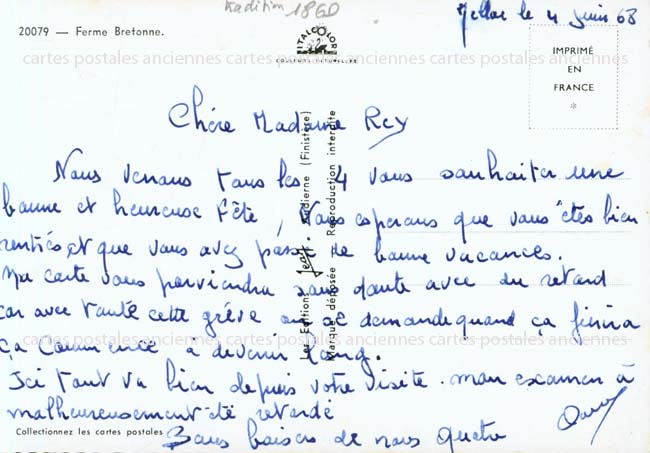 tradition 1860
Mellac le 4 juin 68
20079 — Ferme Bretonne.
ITALCOLOR
IMPRIMÉ
EN
FRANCE
*
cartes postales anciennes cartes postales anciennes cartes postales anciennes
Chère Madame Rey
Nous venons tous les 4 vous souhaiter une
bonne et heureuse Fête, Nous esperons que vous êtes bien
rentrés et que vous avez passé de bonne vacances.
Ma carte vous parviendra sans doute avec du retard
car avec toute cette grève on se demande quand ça finira
ça commence à devenir long.
Ici tout va bien depuis votre visite. mon examen à
malheureusement été retardé
Bons baisers de nous quatre
Les Editions Jean Audierne (Finistère)
Marque déposée Reproduction interdite
cartes postales anciennes cartes postales anciennes cartes postales anciennes
Collectionnez les cartes postales